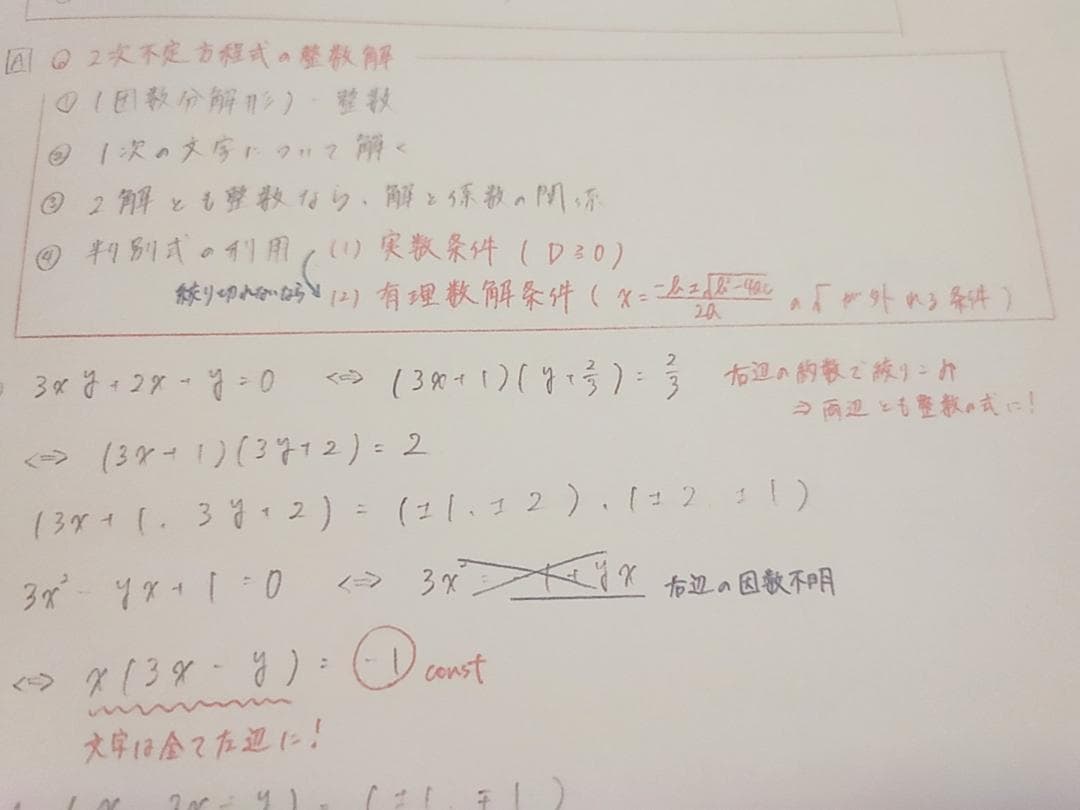 A ◎ 2次不定方程式の整数解
① (因数分解形)・整数
② 1次の文字について解く
③ 2解とも整数なら、解と係数の関係
④ 判別式の利用 (1) 実数条件 (D≧0)
絞り切れないなら (2) 有理数解条件 (x=\frac{-b±√b²-4ac}{2a} の√が外れる条件)
3xy+2x+y=0 ⟺ (3x+1)(y+\frac{2}{3})=\frac{2}{3} 右辺の約数で絞り込み
⇒両辺とも整数の式に!
⟺ (3x+1)(3y+2)=2
(3x+1, 3y+2)=(±1, ±2), (±2, ±1)
3x²-yx+1=0 ⟺ 3x²=-1+yx 右辺の因数不明
⟺ x(3x-y)=-1 const
文字は全て左辺に!
(x, 3x-y)=(±1, ∓1)